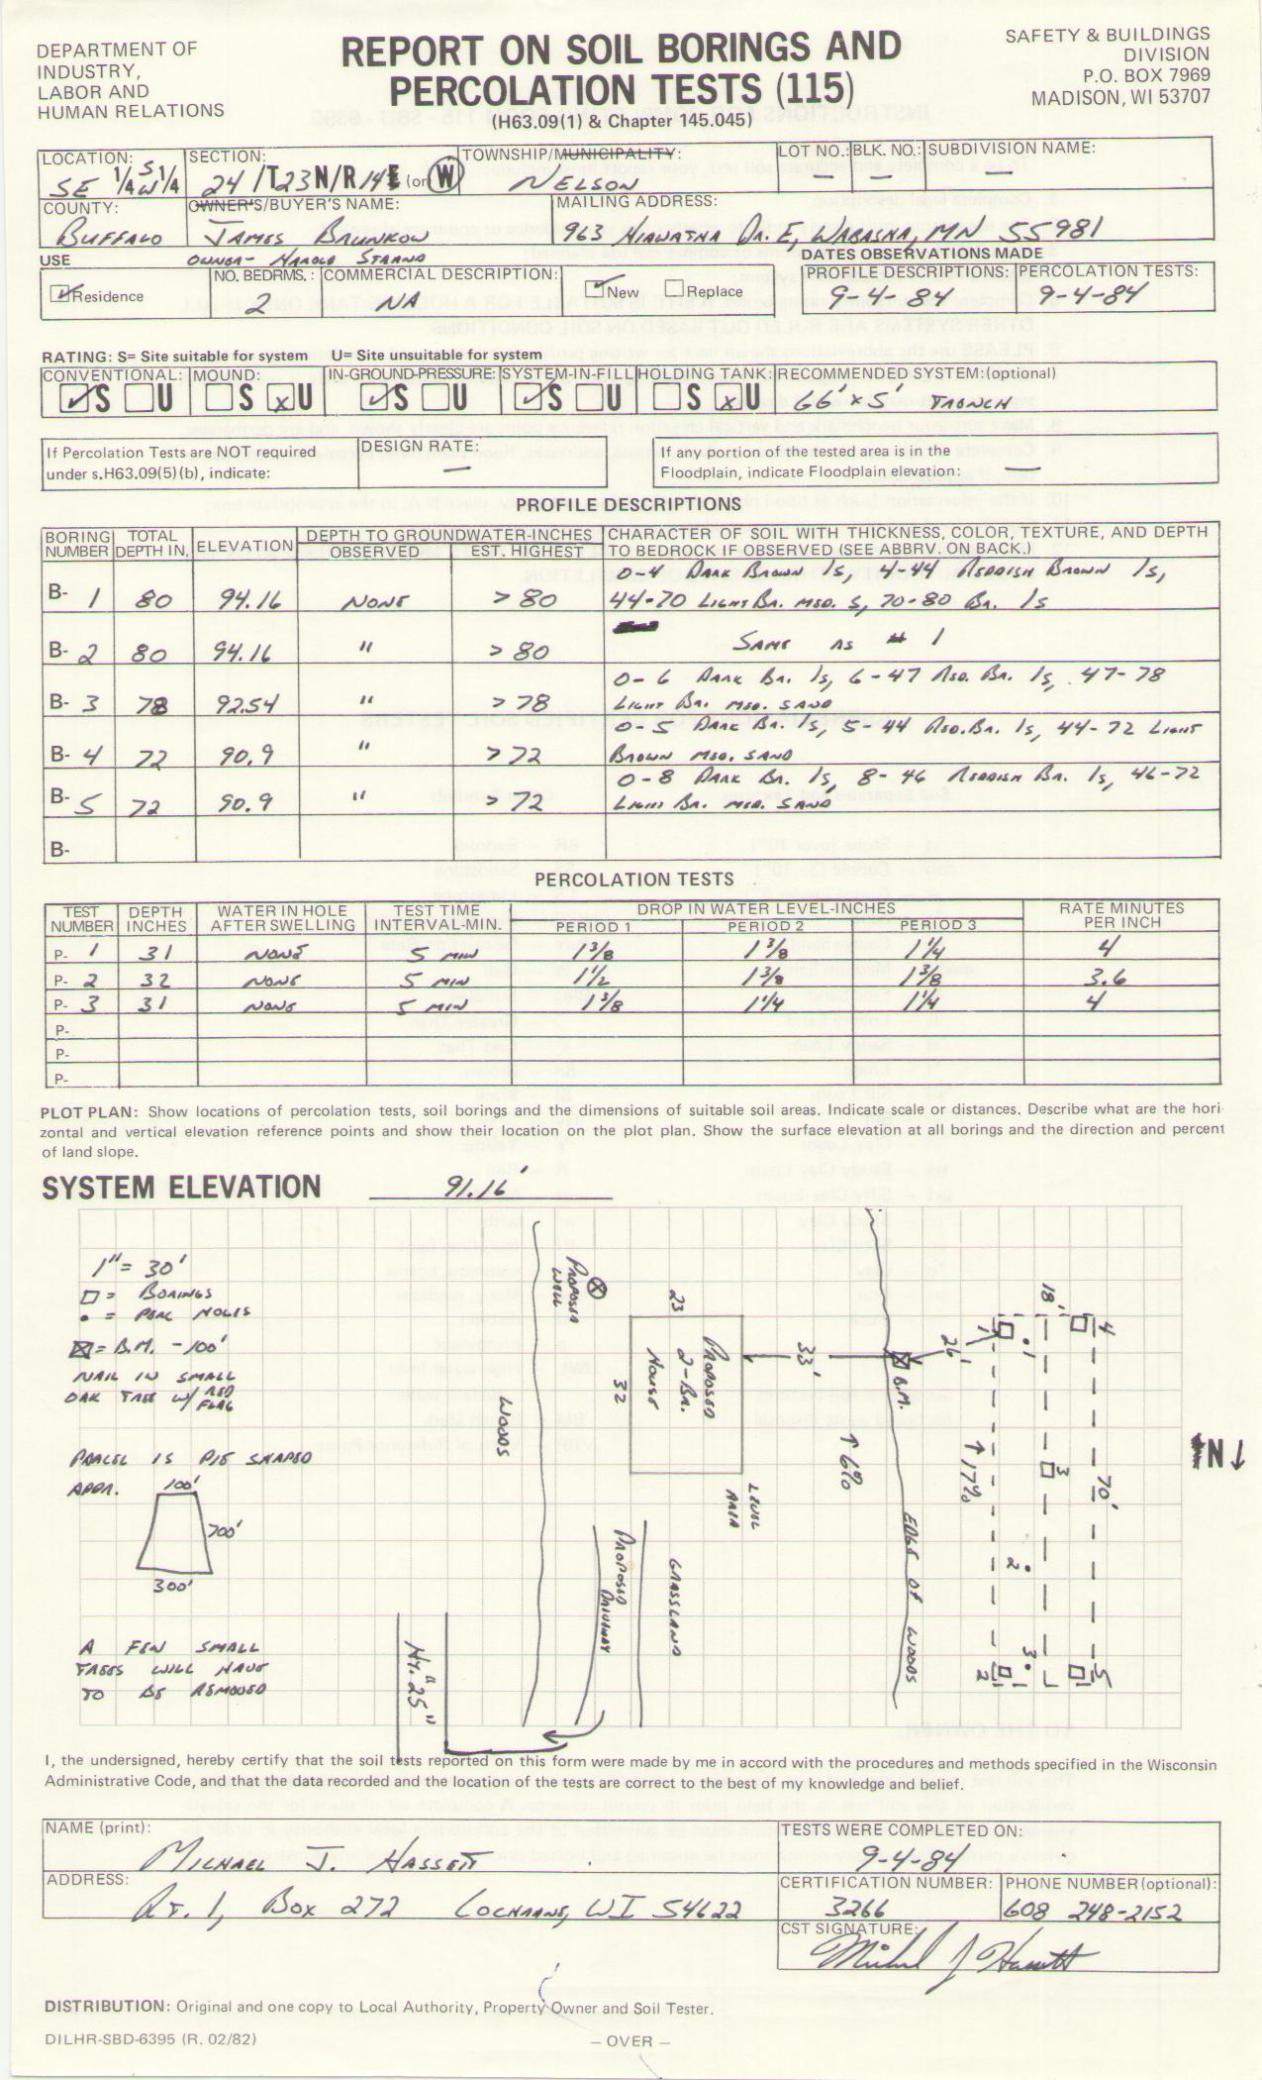 DEPARTMENT OF
INDUSTRY,
LABOR AND
HUMAN RELATIONS
REPORT ON SOIL BORINGS AND
PERCOLATION TESTS (115)
(H63.09(1) & Chapter 145.045)
SAFETY & BUILDINGS
DIVISION
P.O. BOX 7969
MADISON, WI 53707
LOCATION: SECTION: TOWNSHIP/MUNICIPALITY: LOT NO.: BLK. NO.: SUBDIVISION NAME:
SE 1/4 SW 1/4 24 /T23N/R14E (or) W NELSON — — —
COUNTY: OWNER'S/BUYER'S NAME: MAILING ADDRESS:
BUFFALO JAMES BRUNKOW 963 HIAWATHA DR. E, WABASHA, MN 55981
USE OWNER- HAROLD STRAND DATES OBSERVATIONS MADE
NO. BEDRMS.: COMMERCIAL DESCRIPTION: PROFILE DESCRIPTIONS: PERCOLATION TESTS:
Residence 2 NA New Replace 9-4-84 9-4-84
RATING: S= Site suitable for system U= Site unsuitable for system
CONVENTIONAL: MOUND: IN-GROUND-PRESSURE: SYSTEM-IN-FILL HOLDING TANK: RECOMMENDED SYSTEM:(optional)
S U S x U S U S U S x U 66' x 5' TRENCH
If Percolation Tests are NOT required
under s.H63.09(5)(b), indicate:
DESIGN RATE:
—
If any portion of the tested area is in the
Floodplain, indicate Floodplain elevation: —
PROFILE DESCRIPTIONS
BORING NUMBER TOTAL DEPTH IN. ELEVATION DEPTH TO GROUNDWATER-INCHES CHARACTER OF SOIL WITH THICKNESS, COLOR, TEXTURE, AND DEPTH
OBSERVED EST. HIGHEST TO BEDROCK IF OBSERVED (SEE ABBRV. ON BACK.)
0-4 DARK BROWN ls, 4-44 REDDISH BROWN ls,
B- 1 80 94.16 NONE >80 44-70 LIGHT BR. MED. S, 70-80 BR. ls
B- 2 80 94.16 " >80 SAME AS # 1
0-6 DARK BR. ls, 6-47 RED. BR. ls, 47-78
B- 3 78 92.54 " >78 LIGHT BR. MED. SAND
0-5 DARK BR. ls, 5-44 RED.BR. ls, 44-72 LIGHT
B- 4 72 90.9 " >72 BROWN MED. SAND
0-8 DARK BR. ls, 8-46 REDDISH BR. ls, 46-72
B- 5 72 90.9 " >72 LIGHT BR. MED. SAND
B-
PERCOLATION TESTS
TEST NUMBER DEPTH INCHES WATER IN HOLE AFTER SWELLING TEST TIME INTERVAL-MIN. DROP IN WATER LEVEL-INCHES RATE MINUTES PER INCH
PERIOD 1 PERIOD 2 PERIOD 3
P- 1 31 NONE 5 MIN 1 3/8 1 3/8 1 1/4 4
P- 2 32 NONE 5 MIN 1 1/2 1 3/8 1 3/8 3.6
P- 3 31 NONE 5 MIN 1 3/8 1 1/4 1 1/4 4
P-
P-
P-
PLOT PLAN: Show locations of percolation tests, soil borings and the dimensions of suitable soil areas. Indicate scale or distances. Describe what are the hori-
zontal and vertical elevation reference points and show their location on the plot plan. Show the surface elevation at all borings and the direction and percent
of land slope.
SYSTEM ELEVATION 91.16'
1" = 30'
□ = BORINGS
• = PERC HOLES
⊠ = B.M. - 100'
NAIL IN SMALL
OAK TREE W/ RED
FLAG
PARCEL IS PIE SHAPED
APPR.
100'
700'
300'
A FEW SMALL
TREES WILL HAVE
TO BE REMOVED
PROPOSED
WELL
WOODS
23
32
PROPOSED
2-BR.
HOUSE
33'
B.M.
26'
18'
70'
↑ 6%
↑ 17%
LEVEL
AREA
EDGE OF WOODS
PROPOSED
DRIVEWAY
GRASSLAND
HY. "25"
1
1
4
3
2
3
2
5
N ↓
I, the undersigned, hereby certify that the soil tests reported on this form were made by me in accord with the procedures and methods specified in the Wisconsin
Administrative Code, and that the data recorded and the location of the tests are correct to the best of my knowledge and belief.
NAME (print): TESTS WERE COMPLETED ON:
MICHAEL J. HASSETT 9-4-84
ADDRESS: CERTIFICATION NUMBER: PHONE NUMBER (optional):
RT. 1, BOX 272 COCHRANE, WI 54622 3266 608 248-2152
CST SIGNATURE:
Michael J Hassett
DISTRIBUTION: Original and one copy to Local Authority, Property Owner and Soil Tester.
DILHR-SBD-6395 (R. 02/82)
– OVER –